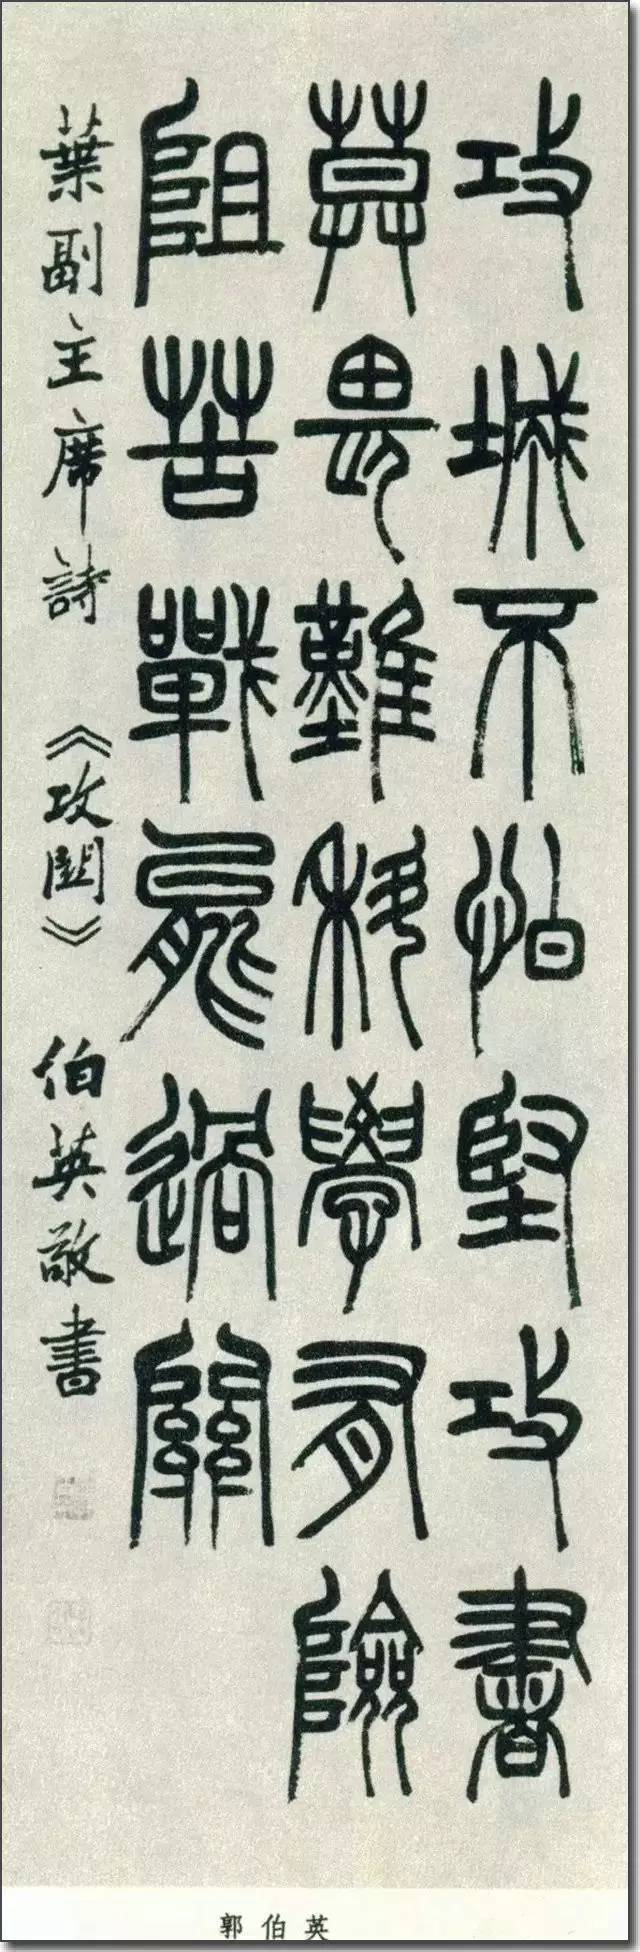 攻城不怕堅攻書
莫畏難科學有險
阻苦戰能過關
葉副主席詩《攻関》伯英敬書
郭伯英